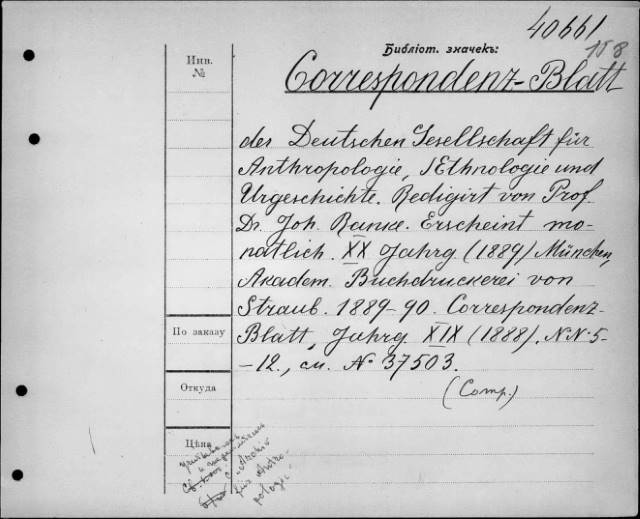 40661
158
Библіот. значекъ:
Инв.
№
Correspondenz-Blatt
der Deutschen Gesellschaft für
Anthropologie, Ethnologie und
Urgeschichte. Redigirt von Prof.
Dr. Joh. Ranke. Erscheint mo-
natlich. XX Jahrg. (1889) München,
Akadem. Buchdruckerei von
Straub. 1889-90. Correspondenz-
По заказу
Blatt, Jahrg XIX (1888). NN 5-
-12., см. № 37503.
Откуда
(Comp.)
Цѣна
с „Archiv
für Anthro-
pologie"